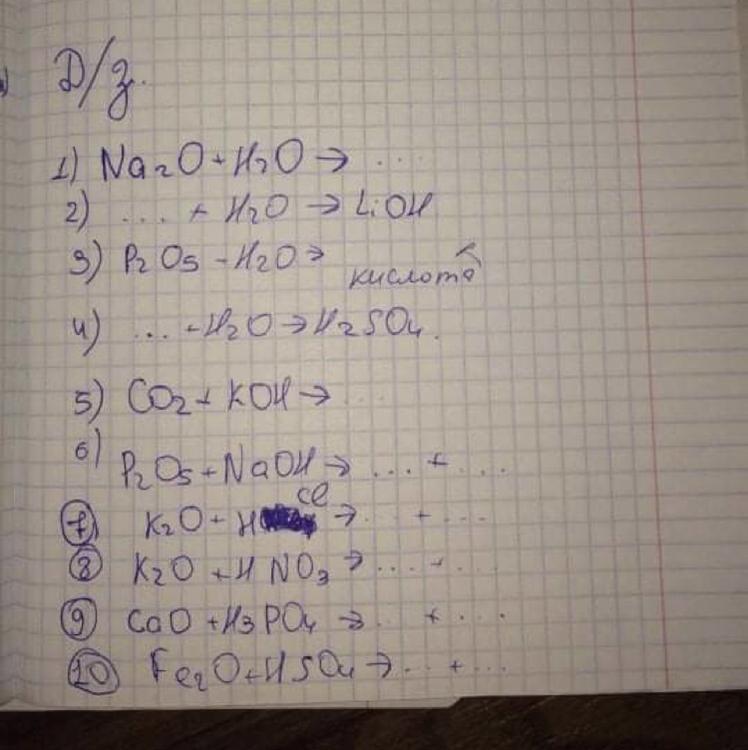 Д/з.
1) Na2O + H2O → ...
2) ... + H2O → LiOH
3) P2O5 - H2O → кислота
4) ... - H2O → H2SO4.
5) CO2 + KOH → ...
6) P2O5 + NaOH → ... + ...
7) K2O + HCl → ... + ...
8) K2O + HNO3 → ... + ...
9) CaO + H3PO4 → ... + ...
10) Fe2O + HSO4 → ... + ...